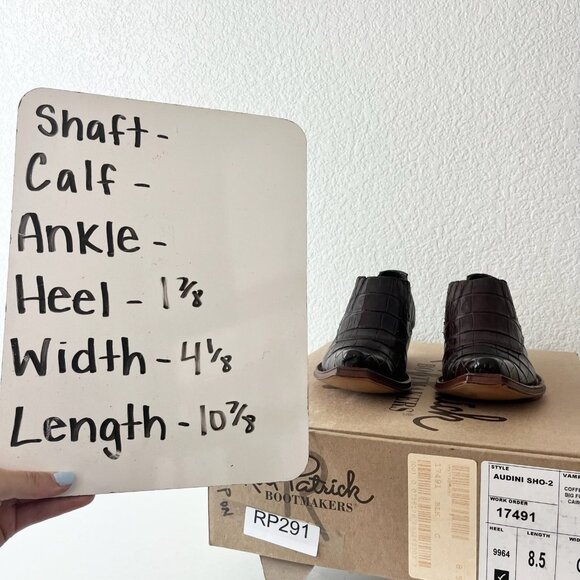 Shaft -
Calf -
Ankle -
Heel - 1 7/8
Width - 4 1/8
Length - 10 7/8
Patrick
BOOTMAKERS
RP291
STYLE
AUDINI SHO-2
WORK ORDER
17491
HEEL LENGTH
9964 8.5